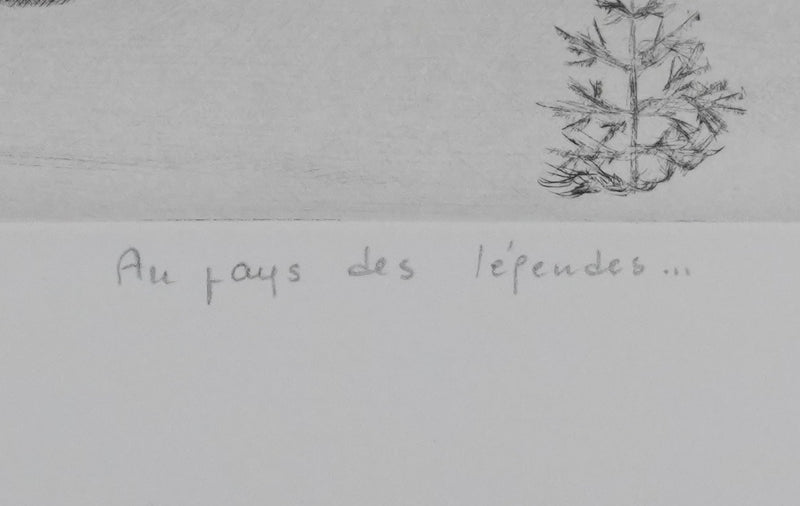 Au pays des légendes...